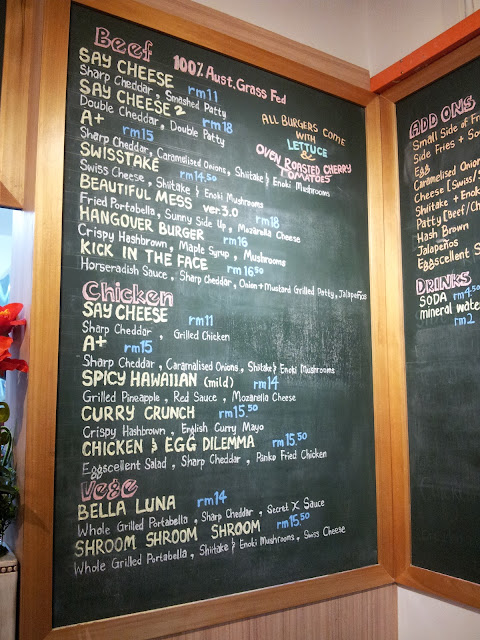 Beef 100% Aust. Grass Fed
SAY CHEESE rm11
Sharp Cheddar, Smashed Patty
SAY CHEESE 2 rm18
Double Cheddar, Double Patty
A+ rm15
Sharp Cheddar, Caramelised Onions, Shiitake & Enoki Mushrooms
SWISSTAKE rm14.50
Swiss Cheese, Shiitake & Enoki Mushrooms
BEAUTIFUL MESS ver.3.0 rm18
Fried Portabella, Sunny Side Up, Mozarella Cheese
HANGOVER BURGER rm16
Crispy Hashbrown, Maple Syrup, Mushrooms
KICK IN THE FACE rm16.50
Horseradish Sauce, Sharp Cheddar, Onion + Mustard Grilled Patty, Jalapeños
ALL BURGERS COME
WITH
LETTUCE
&
OVEN ROASTED CHERRY
TOMATOES
Chicken
SAY CHEESE rm11
Sharp Cheddar, Grilled Chicken
A+ rm15
Sharp Cheddar, Caramalised Onions, Shiitake & Enoki Mushrooms
SPICY HAWAIIAN (mild) rm14
Grilled Pineapple, Red Sauce, Mozarella Cheese
CURRY CRUNCH rm15.50
Crispy Hashbrown, English Curry Mayo
CHICKEN & EGG DILEMMA rm15.50
Eggscellent Salad, Sharp Cheddar, Panko Fried Chicken
Vege
BELLA LUNA rm14
Whole Grilled Portabella, Sharp Cheddar, Secret X Sauce
SHROOM SHROOM SHROOM rm15.50
Whole Grilled Portabella, Shiitake & Enoki Mushrooms, Swiss Cheese
ADD ONS
Small Side of Fr
Side Fries + So
Egg
Caramelised Onion
Cheese [Swiss/S
Shiitake + Enok
Patty [Beef/Ch
Hash Brown
Jalapeños
Eggscellent S
DRINKS
SODA rm4.50
mineral water
rm2